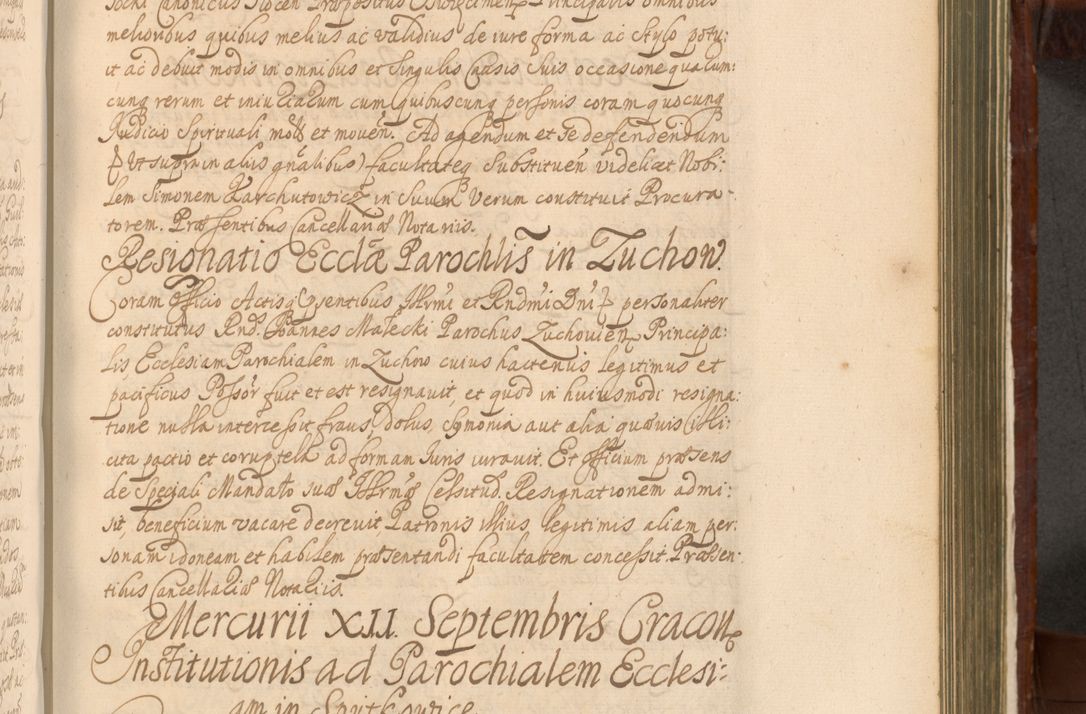 melioribus quibus melius ac validius de iure forma ac stylo potu:
it ac debuit modis in omnibus et singulis Causis suis occasione quarum:
cunq rerum et iniuriarum cum quibuscunq personis coram quocunq
Iudicio Spirituali mot et moven. Ad agendum et se defendendum
ut supra in aliis gnalibus) facultateq substituen videlicet Nobi:
lem Simonem Karchutowicz in suum Verum constituit Procura-
torem. Præsentibus Cancellariæ Notariis.
Resignatio Ecclæ Parochlis in Zuchow.
Coram Officio Actisq psentibus Illrmi et Rndmi Dni personaliter
constitutus Rnd. Joannes Małecki Parochus Zuchovien Principa:
lis Ecclesiam Parochialem in Zuchow cuius hactenus legitimus et
pacificus Possor fuit et est resignavit, et quod in huiusmodi resigna:
tione nulla intercessit fraus, dolus, symonia aut alia quævis illi:
cita pactio et coruptela ad formam Iuris iuravit. Et Officium præsens
de Speciali Mandato suæ Illrmæ Celsitud. Resignationem admi:
sit, beneficium vacare decrevit, Patronis illius legitimis aliam per:
sonam idoneam et habilem præsentandi facultatem concessit. Præsen-
tibus Cancellariæ Notariis.
Mercurii XII. Septembris Cracoviæ
Institutionis ad Parochialem Ecclesi:
am in Spytkowice